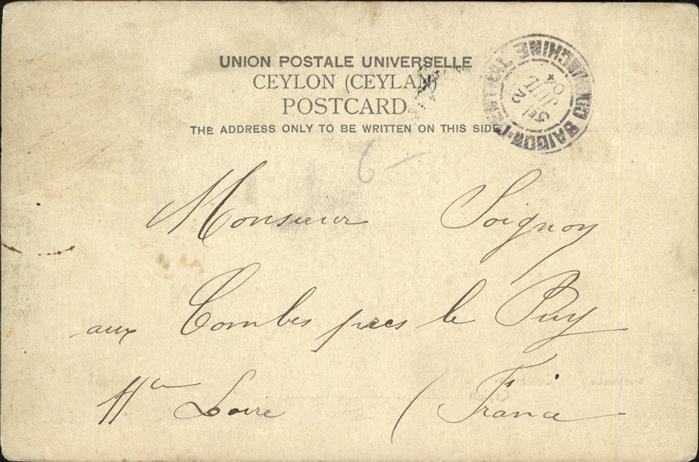 UNION POSTALE UNIVERSELLE
CEYLON (CEYLAN)
POSTCARD.
THE ADDRESS ONLY TO BE WRITTEN ON THIS SIDE
SAIGON-CENTRAL COCHINCHINE
JUIL
04
6-
Monsieur Soignoy
aux Combes pres le Puy
Hte Loire (France